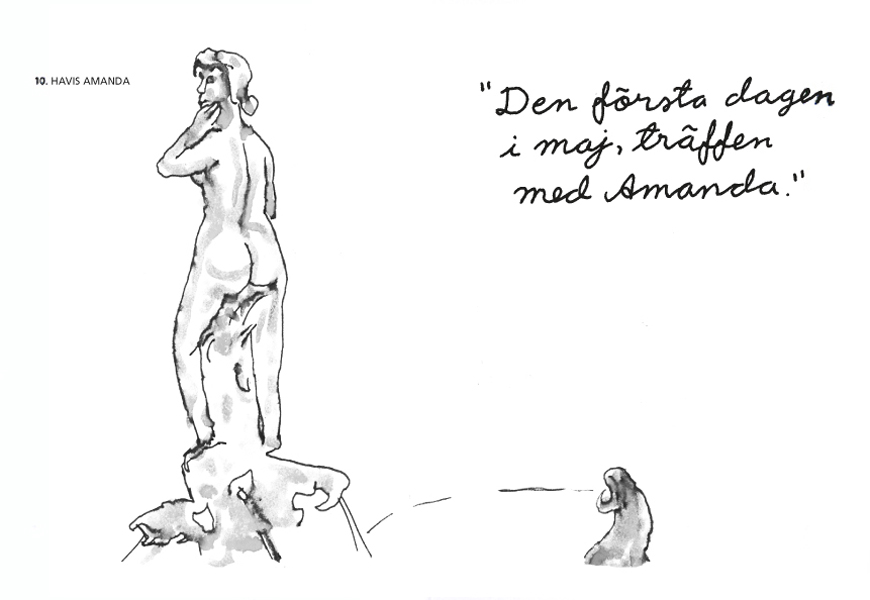 10. HAVIS AMANDA
"Den första dagen
i maj, träffen
med Amanda."